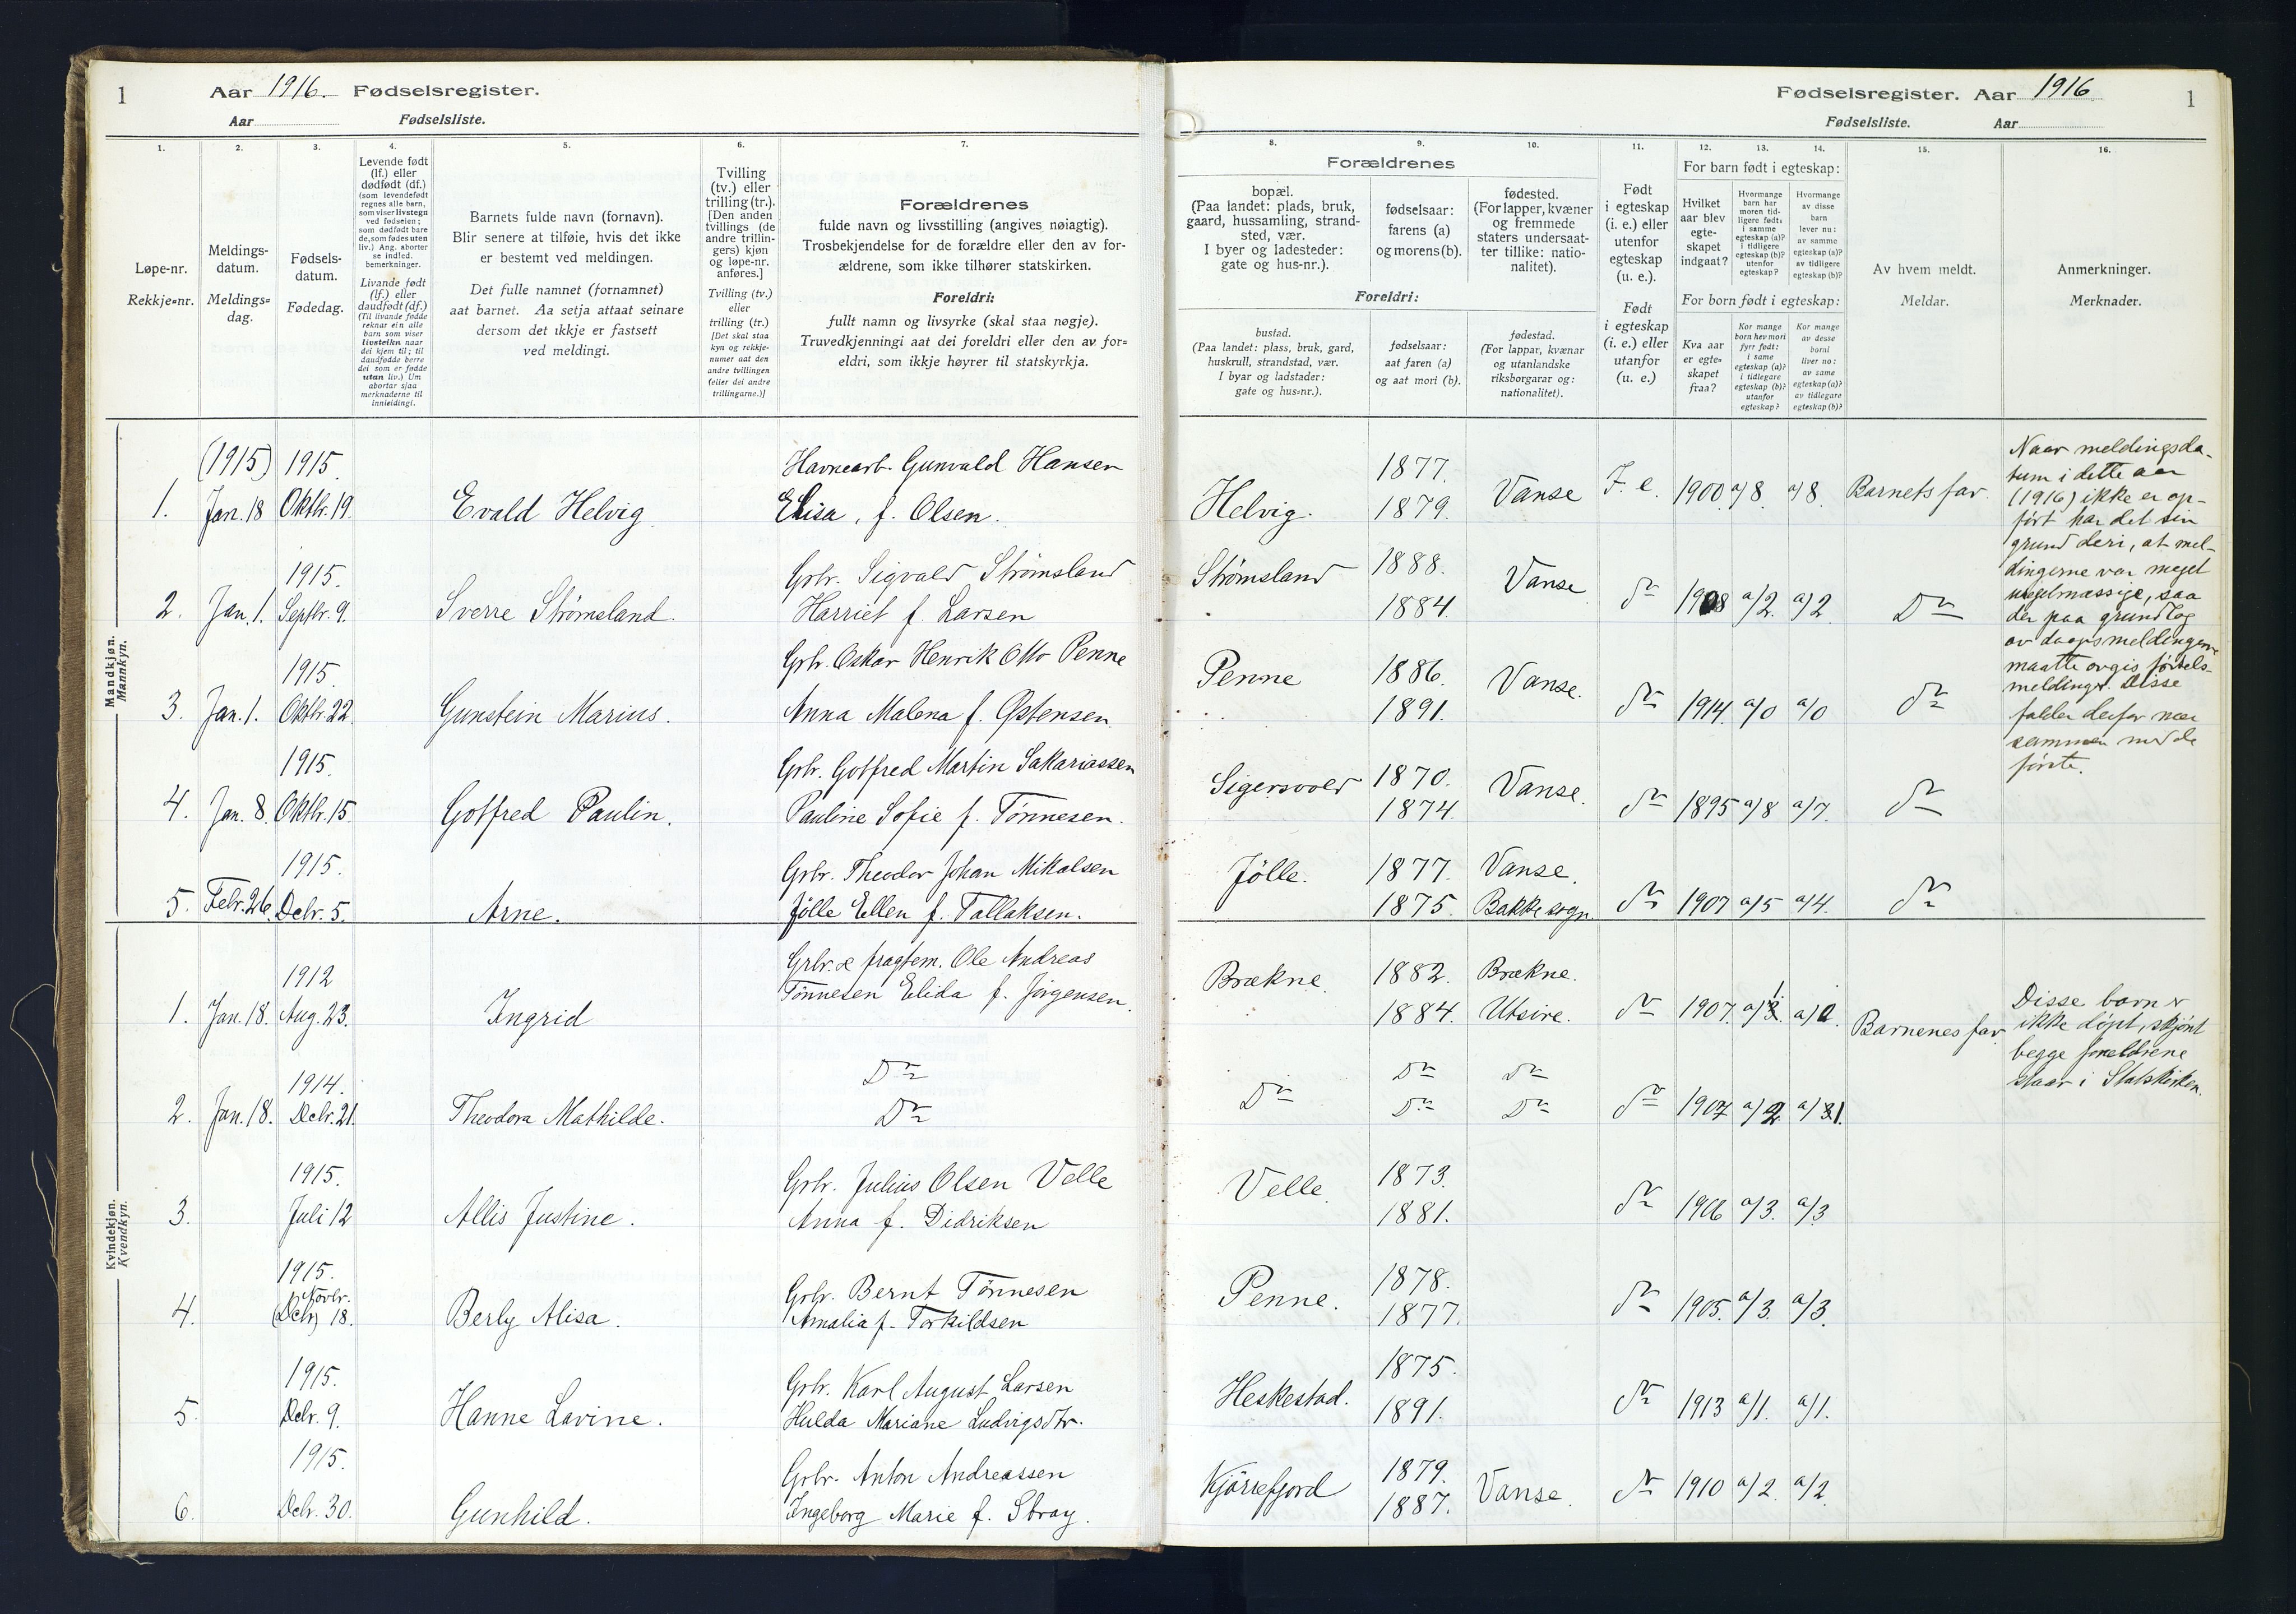 1 Aar 1916. Fødselsregister.
Aar Fødselsliste.
Fødselsregister. Aar 1916. 1
Fødselsliste. Aar
1. 2. 3. 4. 5. 6. 7.
Løpe-nr.
Rekkje=nr.
Meldings-
datum.
Meldings=
dag.
Fødsels-
datum.
Fødedag.
Levende født
(lf.) eller
dødfødt (df.)
(som levendefødt
regnes alle barn,
som viser livstegn
ved fødselen;
som dødfødt bare
de, som fødes uten
liv.) Ang. aborter
se indled.
bemerkninger.
Livande født
(lf.) eller
daudfødt (df.)
(Til livande fødde
reknar ein alle
barn som viser
livsteikn naar
dei kjem til; til
daudfødde berre
dei som er fødde
utan liv.) Um
abortar sjaa
merknaderne til
innleidingi.
Barnets fulde navn (fornavn).
Blir senere at tilføie, hvis det ikke
er bestemt ved meldingen.
Det fulle namnet (fornamnet)
aat barnet. Aa setja attaat seinare
dersom det ikkje er fastsett
ved meldingi.
Tvilling
(tv.) eller
trilling (tr.).
[Den anden
tvillings (de
andre trillin-
gers) kjøn
og løpe-nr.
anføres.]
Tvilling (tv.)
eller
trilling (tr.)
[Det skal staa
kyn og rekkje-
numer aat den
andre tvillingen
(eller dei andre
trillingarne.)]
Forældrenes
fulde navn og livsstilling (angives nøiagtig).
Trosbekjendelse for de forældre eller den av for-
ældrene, som ikke tilhører statskirken.
Foreldri:
fullt namn og livsyrke (skal staa nøgje).
Truvedkjenningi aat dei foreldri eller den av for=
eldri, som ikkje høyrer til statskyrkja.
8. 9. 10. 11. 12. 13. 14. 15. 16.
Forældrenes
bopæl.
(Paa landet: plads, bruk,
gaard, hussamling, strand-
sted, vær.
I byer og ladesteder:
gate og hus-nr.).
fødselsaar:
farens (a)
og morens (b).
fødested.
(For lapper, kvæner
og fremmede
staters undersaat-
ter tillike: natio-
nalitet).
Foreldri:
bustad.
(Paa landet: plass, bruk, gard,
huskrull, strandstad, vær.
I byar og ladstader:
gate og hus=nr.).
fødselsaar:
aat faren (a)
og aat mori (b).
fødestad.
(For lappar, kvænar
og utanlandske
riksborgarar og:
nationalitet).
Født
i egteskap
(i. e.) eller
utenfor
egteskap
(u. e.).
Født
i egteskap
(i. e.) eller
utanfor
(u. e.)
For barn født i egteskap:
Hvilket
aar blev
egte-
skapet
indgaat?
Hvormange
barn har
moren tid-
ligere født:
i samme
egteskap (a)?
i tidligere
egteskap (b)?
utenfor
egteskap?
Hvormange
av disse
barn
lever nu:
av samme
egteskap (a)?
av tidligere
egteskap (b)?
For born født i egteskap:
Kva aar
er egte=
skapet
fraa?
Kor mange
born hev mori
fyrr født:
i same
egteskap (a)?
i tidlegare
egteskap (b)?
utanfor
egteskap?
Kor mange
av desse
borni
liver no:
av same
egteskap (a)?
av tidlegare
egteskap (b)?
Av hvem meldt.
Meldar.
Anmerkninger.
Merknader.
Mandkjøn.
Mannkyn.
(1915) 1915. Havnearb. Gunvald Hansen 1877.
1. Jan. 18 Oktbr. 19. Evald Helvig. Elisa, f. Olsen. Helvig. 1879. Vanse I. e. 1900. a/8. a/8. Barnets far.
1915. Grbr. Sigvald Strømsland Strømsland 1888. Vanse
2. Jan. 1. Septbr. 9. Sverre Strømsland. Harriet f. Larsen 1884. do 1908 a/2. a/2 Do
1915. Grb. Oskar Henrik Otto Penne Penne 1886. Vanse.
3. Jan. 1. Oktbr. 22. Gunstein Marius. Anna Malena f. Østensen 1891. do 1914. a/0 a/0 do
1915. Grbr. Gotfred Martin Sakariassen Sigersvold 1870. Vanse.
4. Jan. 8. Oktbr. 15. Gotfred Paulin. Pauline Sofie f. Tønnesen. 1874. do 1895 a/8 a/7. do
1915. Grbr. Theodor Johan Mikalsen Jølle. 1877. Vanse.
5. Febr. 26. Dcbr. 5. Arne. Jølle Ellen f. Tallaksen. 1875. Bakke sogn do 1907 a/5 a/4. do
Naar meldingsda-
tum i dette aar
(1916) ikke er op-
ført har det sin
grund deri, at mel-
dingerne var meget
uregelmæssige, saa
der paa grundlag
av daapsmeldingerne
maatte avgis fødsels-
meldinger. Disse
falder derfor nær
sammen med de
første.
Kvindekjøn.
Kvendkyn.
1912 Grbr. & fragtem. Ole Andreas Brækne. 1882. Brækne.
1. Jan. 18. Aug. 23. Ingrid Tønnesen Elida f. Jørgensen. 1884. Utsire. do 1907. a/1 a/0. Barnenes far
1914. Do Do Do Do
2. Jan. 18. Dcbr. 21. Theodora Mathilde. Do Do Do do 1907 a/2 a/1.
Disse barn er
ikke døpt, skjønt
begge forældrene
staar i Statskirken.
1915. Grbr. Julius Olsen Velle Velle. 1873.
3. Juli 12 Allis Justine. Anna f. Didriksen 1881. do 1906 a/3. a/3
1915. Novbr. Grbr. Bernt Tønnesen Penne. 1878.
4. (Dcbr) 18. Berly Alisa. Amalia f. Torkildsen 1877. do 1905. a/3. a/3.
1915. Grbr. Karl August Larsen Heskestad. 1875.
5. Dcbr. 9. Hanne Lavine. Hulda Mariane Ludvigsdtr. 1891. do 1913 a/1. a/1.
1915. Grbr. Anton Andreassen Kjørrefjord 1879.
6. Dcbr. 30. Gunhild. Ingeborg Marie f. Stray. 1887. Vanse. do 1910 a/2. a/2.